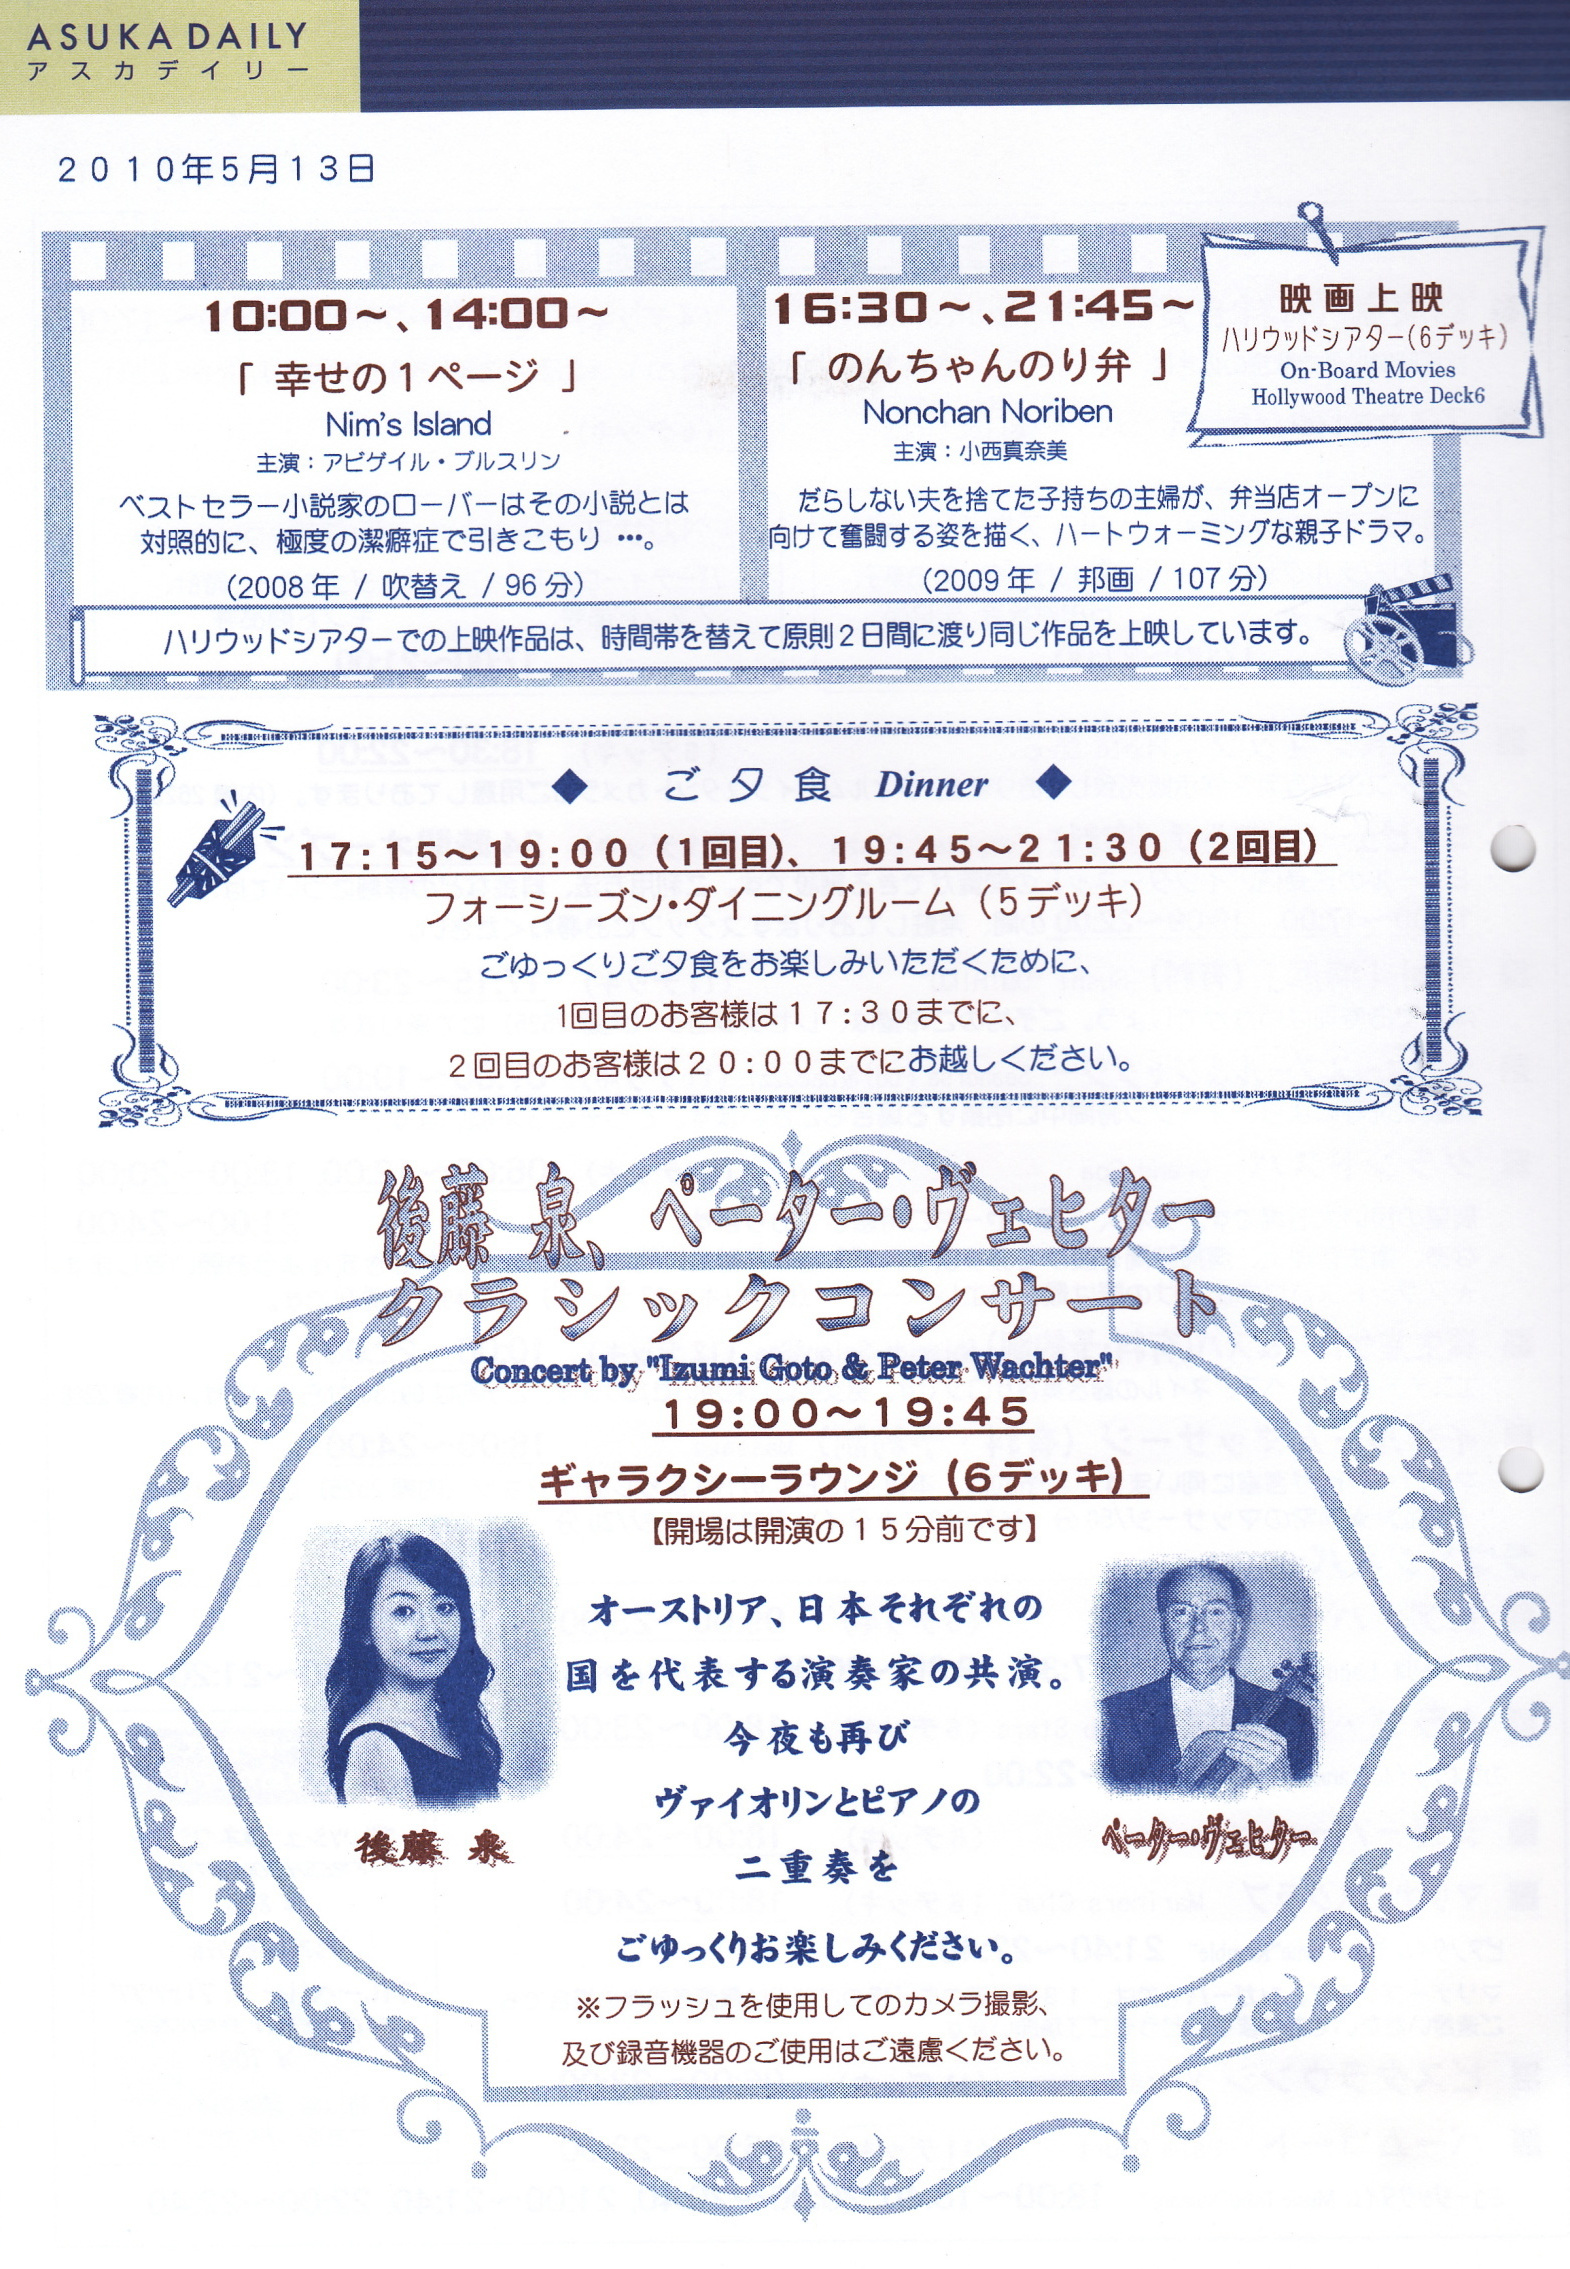 ASUKA DAILY
アスカデイリー
２０１０年５月１３日
映画上映
ハリウッドシアター(6デッキ)
On-Board Movies
Hollywood Theatre Deck6
10:00～、14:00～
「 幸せの１ページ 」
Nim's Island
主演：アビゲイル・ブルスリン
ベストセラー小説家のローバーはその小説とは
対照的に、極度の潔癖症で引きこもり …。
（2008 年 / 吹替え / 96 分）
16:30～、21:45～
「 のんちゃんのり弁 」
Nonchan Noriben
主演：小西真奈美
だらしない夫を捨てた子持ちの主婦が、弁当店オープンに
向けて奮闘する姿を描く、ハートウォーミングな親子ドラマ。
（2009 年 / 邦画 / 107 分）
ハリウッドシアターでの上映作品は、時間帯を替えて原則２日間に渡り同じ作品を上映しています。
◆ ご夕食 Dinner ◆
１７:１５～１９:００（１回目）、１９:４５～２１:３０（２回目）
フォーシーズン・ダイニングルーム（５デッキ）
ごゆっくりご夕食をお楽しみいただくために、
1回目のお客様は１７:３０までに、
２回目のお客様は２０:００までにお越しください。
後藤 泉、ペーター・ヴェヒター
クラシックコンサート
Concert by "Izumi Goto & Peter Wachter"
１９:００～１９:４５
ギャラクシーラウンジ（６デッキ）
【開場は開演の１５分前です】
オーストリア、日本それぞれの
国を代表する演奏家の共演。
今夜も再び
ヴァイオリンとピアノの
二重奏を
ごゆっくりお楽しみください。
後藤 泉
ペーター・ヴェヒター
※フラッシュを使用してのカメラ撮影、
及び録音機器のご使用はご遠慮ください。